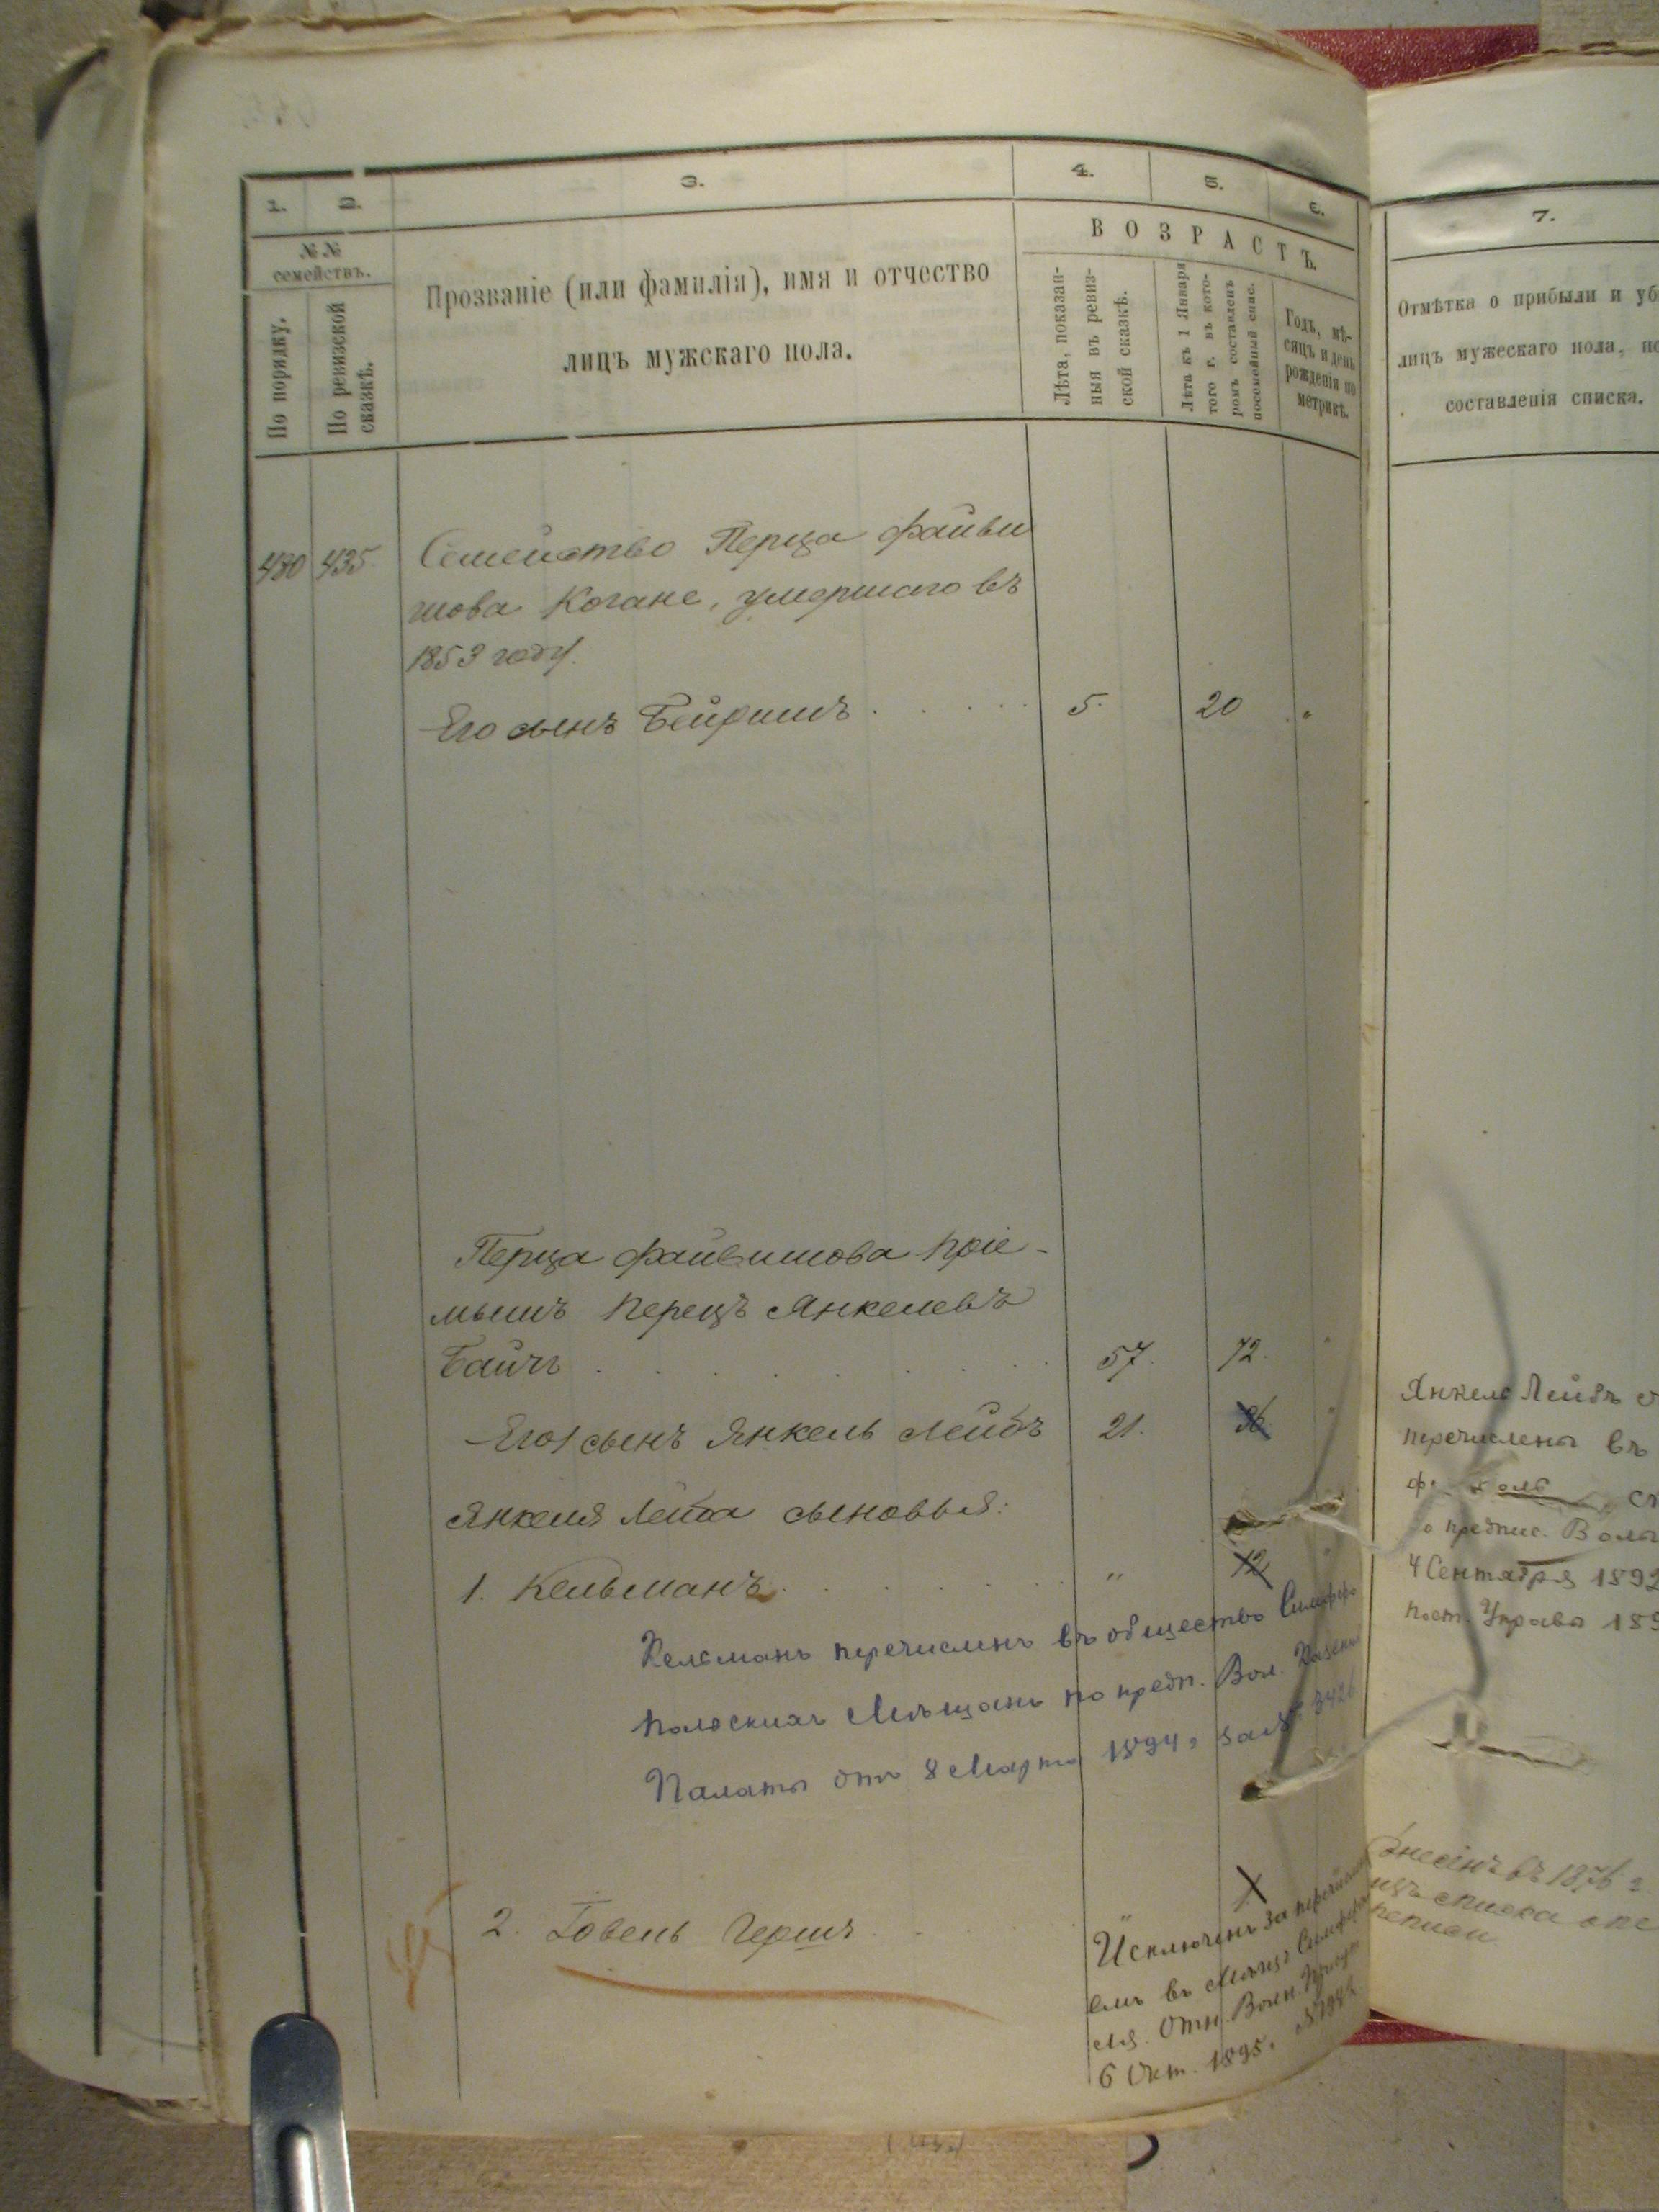 1. 2. 3. 4. 5. 6.
№№ семействъ.
По порядку.
По ревизской сказкѣ.
Прозваніе (или фамилія), имя и отчество
лицъ мужскаго пола.
ВОЗРАСТЪ.
Лѣта, показан-
ныя въ ревиз-
ской сказкѣ.
Лѣта къ 1 Января
того г. въ кото-
ромъ составленъ
посемейный спис.
Годъ, мѣ-
сяцъ и день
рожденія по
метрикѣ.
480 435. Семейство Перца Файви
шова Когане, умершаго въ
1853 году.
Его сынъ Бейришъ . . . . . 5. 20 "
Перца Файвишова пріе-
мышъ Перецъ Янкелевъ
Байчъ . . . . . . . 57. 72. "
Его сынъ Янкель Лейбъ 21. 36 "
Янкеля Лейба сыновья:
1. Кельманъ . . . . . . . " 12 "
Кельманъ перечисленъ въ общество Симферо
польскихъ Мѣщанъ по предп. Вол. Казен.
Палаты отъ 8 Марта 1894 г за № 3426
2. Іовель Гершъ . . "
Исключенъ за перечисле
емъ въ Мѣщ. Симферо
ля. Отн. Волын.
6 Окт. 1895.
7.
Отмѣтка о прибыли и уб
лицъ мужескаго пола, по
составленія списка.
Янкель Лейбъ с
перечислены въ
предпис. Волы
4 Сентября 1892
пост. Управа 189
Внесенъ въ 1876 г
изъ списка о пе
реписи